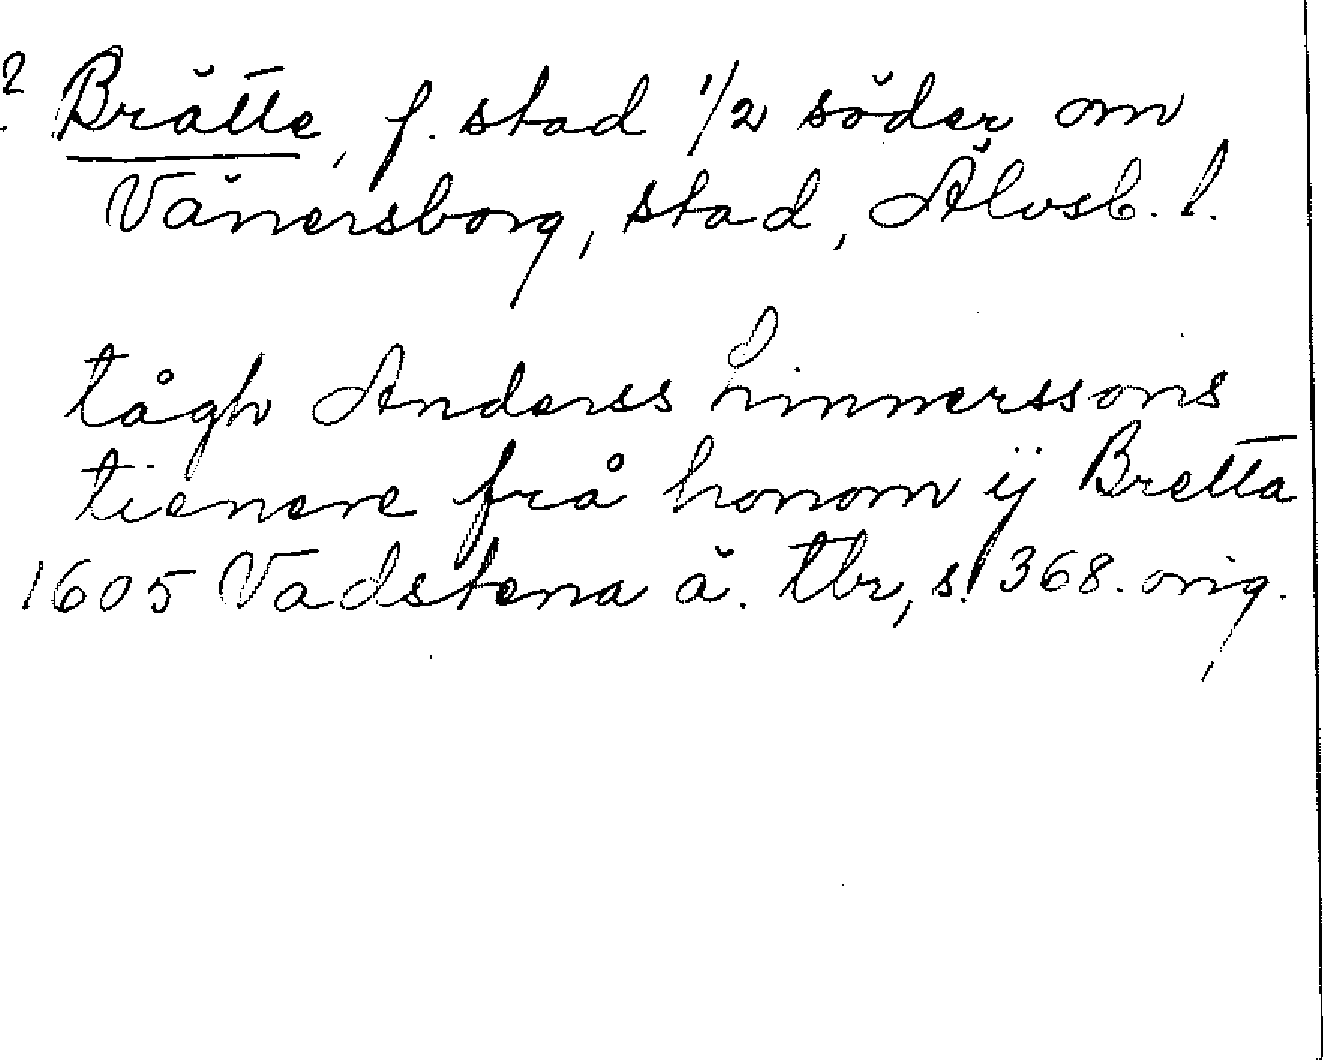 2 Brätte, f. stad 1/2 söder om
Vänersborg, stad, Älvsb. l.
tågh Anderss Linnerssons
tienere frå honom ij Bretta
1605 Vadstena ä. tbr, s. 368. orig.